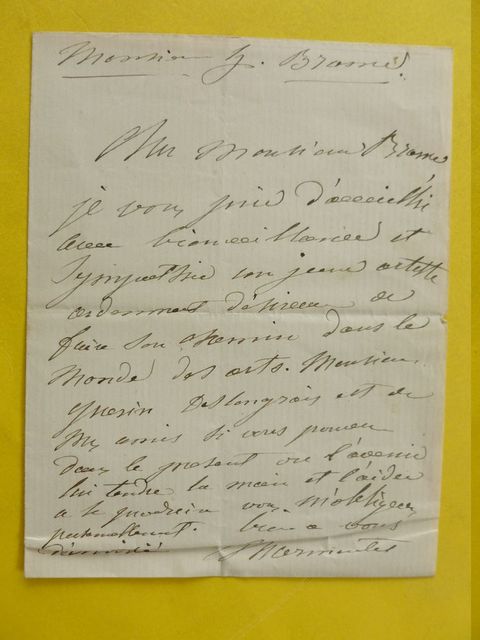 Monsieur H. Brame.
Cher Monsieur Brame
je vous prie d'accueillir
avec bienveillance et
Sympathie un jeune artiste
ardemment désireux de
faire son chemin dans le
Monde des arts. Monsieur
Guérin Deslongrais est de
Mes amis si vous pouvez
dans le présent ou l'avenir
lui tendre la main et l'aider
a se produire vous m'obligerez
personnellement. bien a vous
d'amitié